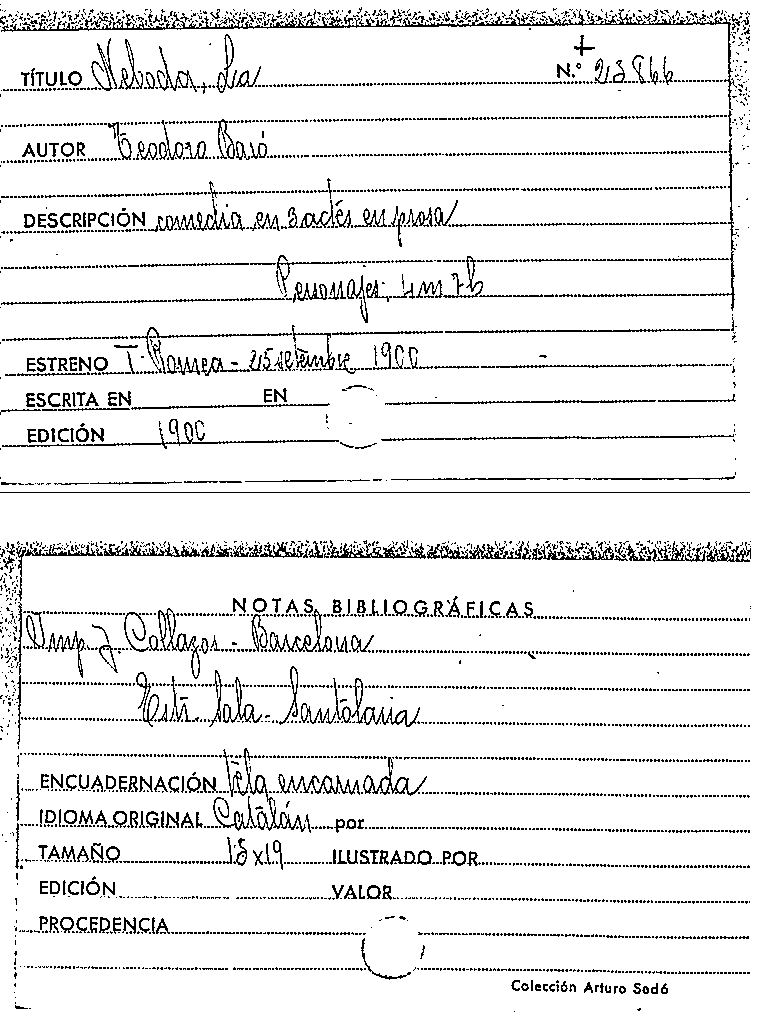 TÍTULO Neboda, La
+
N.º 23866
AUTOR Teodoro Baró
DESCRIPCIÓN comedia en 3 actes en prosa
Personajes: 4m 7h
ESTRENO T. Romea - 25 setembre 1900 -
ESCRITA EN EN
EDICIÓN 1900
NOTAS BIBLIOGRÁFICAS
Imp J Collazos - Barcelona
Estr. Sala - Santolaria
ENCUADERNACIÓN tela encarnada
IDIOMA ORIGINAL Catalán por
TAMAÑO 13x19 ILUSTRADO POR
EDICIÓN VALOR
PROCEDENCIA
Colección Arturo Sedó